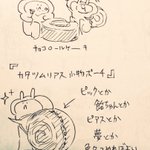 チョコロールケーキ
『カタツムリアス 小物ポーチ』
ピックとか
飴ちゃんとか
ピアスとか
夢とか